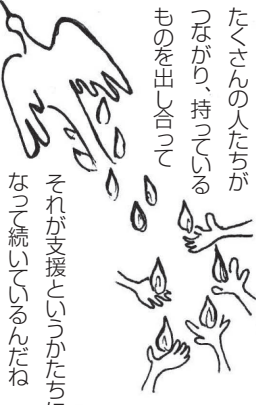 たくさんの人たちが
つながり、持っている
ものを出し合って
それが支援というかたちに
なって続いているんだね